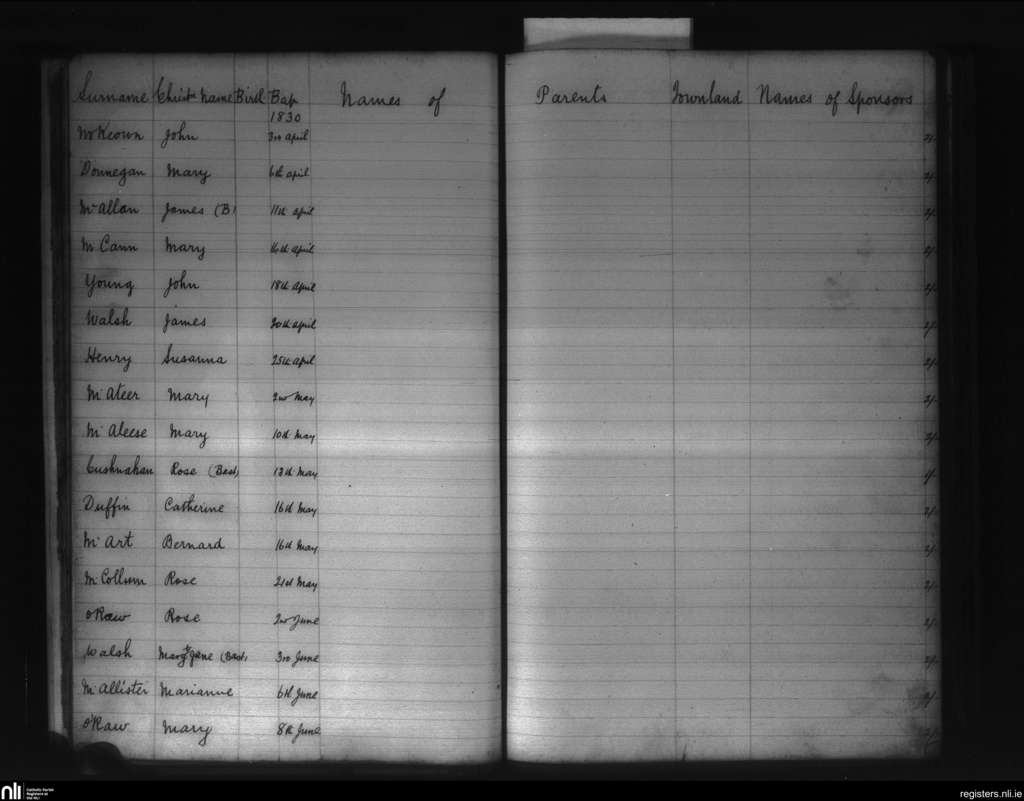 Surname Christn Name Birth Bap Names of Parents Townland Names of Sponsors
1830
McKeown John 3rd April 2/-
Donnegan Mary 6th April 2/-
McAllan James (B) 11th April 2/-
McCann Mary 16th April 2/-
Young John 18th April 2/-
Walsh James 20th April 2/-
Henry Susanna 25th April 2/-
McAteer Mary 2nd May 2/-
McAleese Mary 10th May 2/-
Cushnahan Rose (Bast) 13th May
Duffin Catherine 16th May 2/-
McArt Bernard 16th May 2/-
McCollum Rose 21st May 2/-
O'Raw Rose 2nd June 2/-
Walsh Mary Jane (Bast) 3rd June 2/-
McAllister Marianne 6th June 2/-
O'Raw Mary 8th June 2/-
nli Catholic Parish
Registers at
the NLI
registers.nli.ie